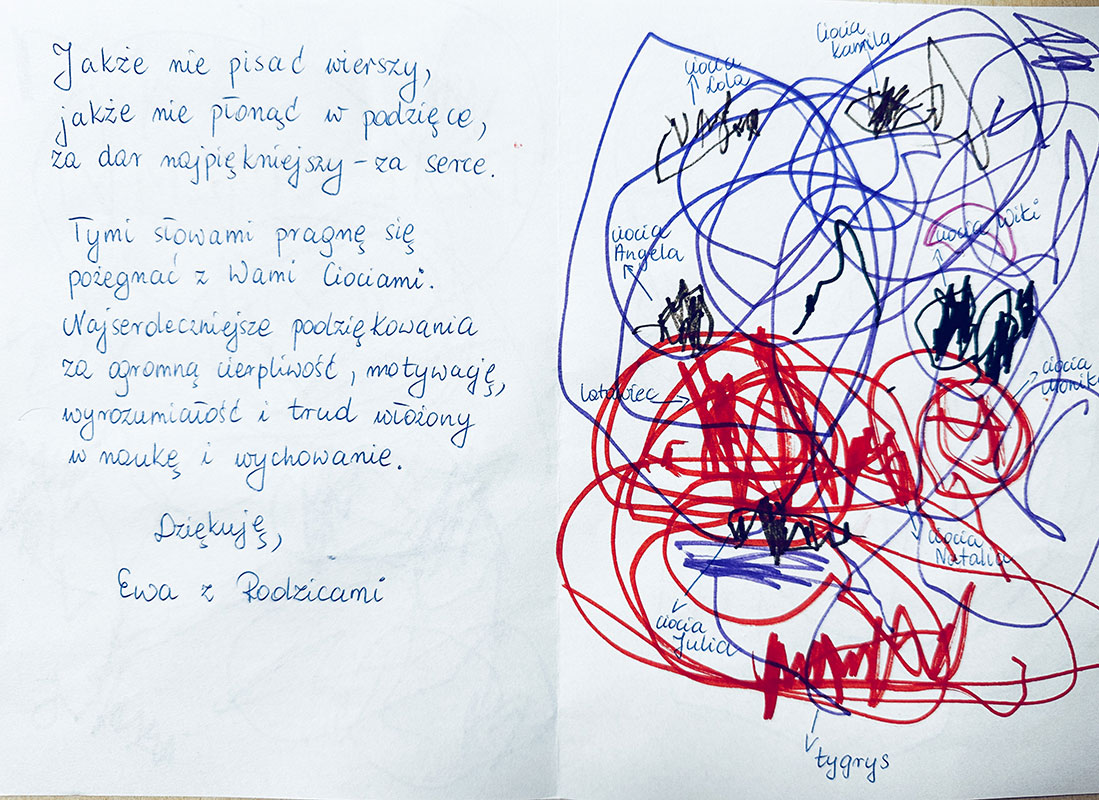 Jakże nie pisać wierszy,
jakże nie płonąć w podzięce,
za dar najpiękniejszy - za serce.
Tymi słowami pragnę się
pożegnać z Wami Ciociami.
Najserdeczniejsze podziękowania
za ogromną cierpliwość, motywację,
wyrozumiałość i trud włożony
w naukę i wychowanie.
Dziękuję,
Ewa z Rodzicami
ciocia
Kamila
ciocia
Lola
ciocia
Angela
ciocia Wiki
latawiec
ciocia
Monika
ciocia
Natalia
ciocia
Julia
tygrys